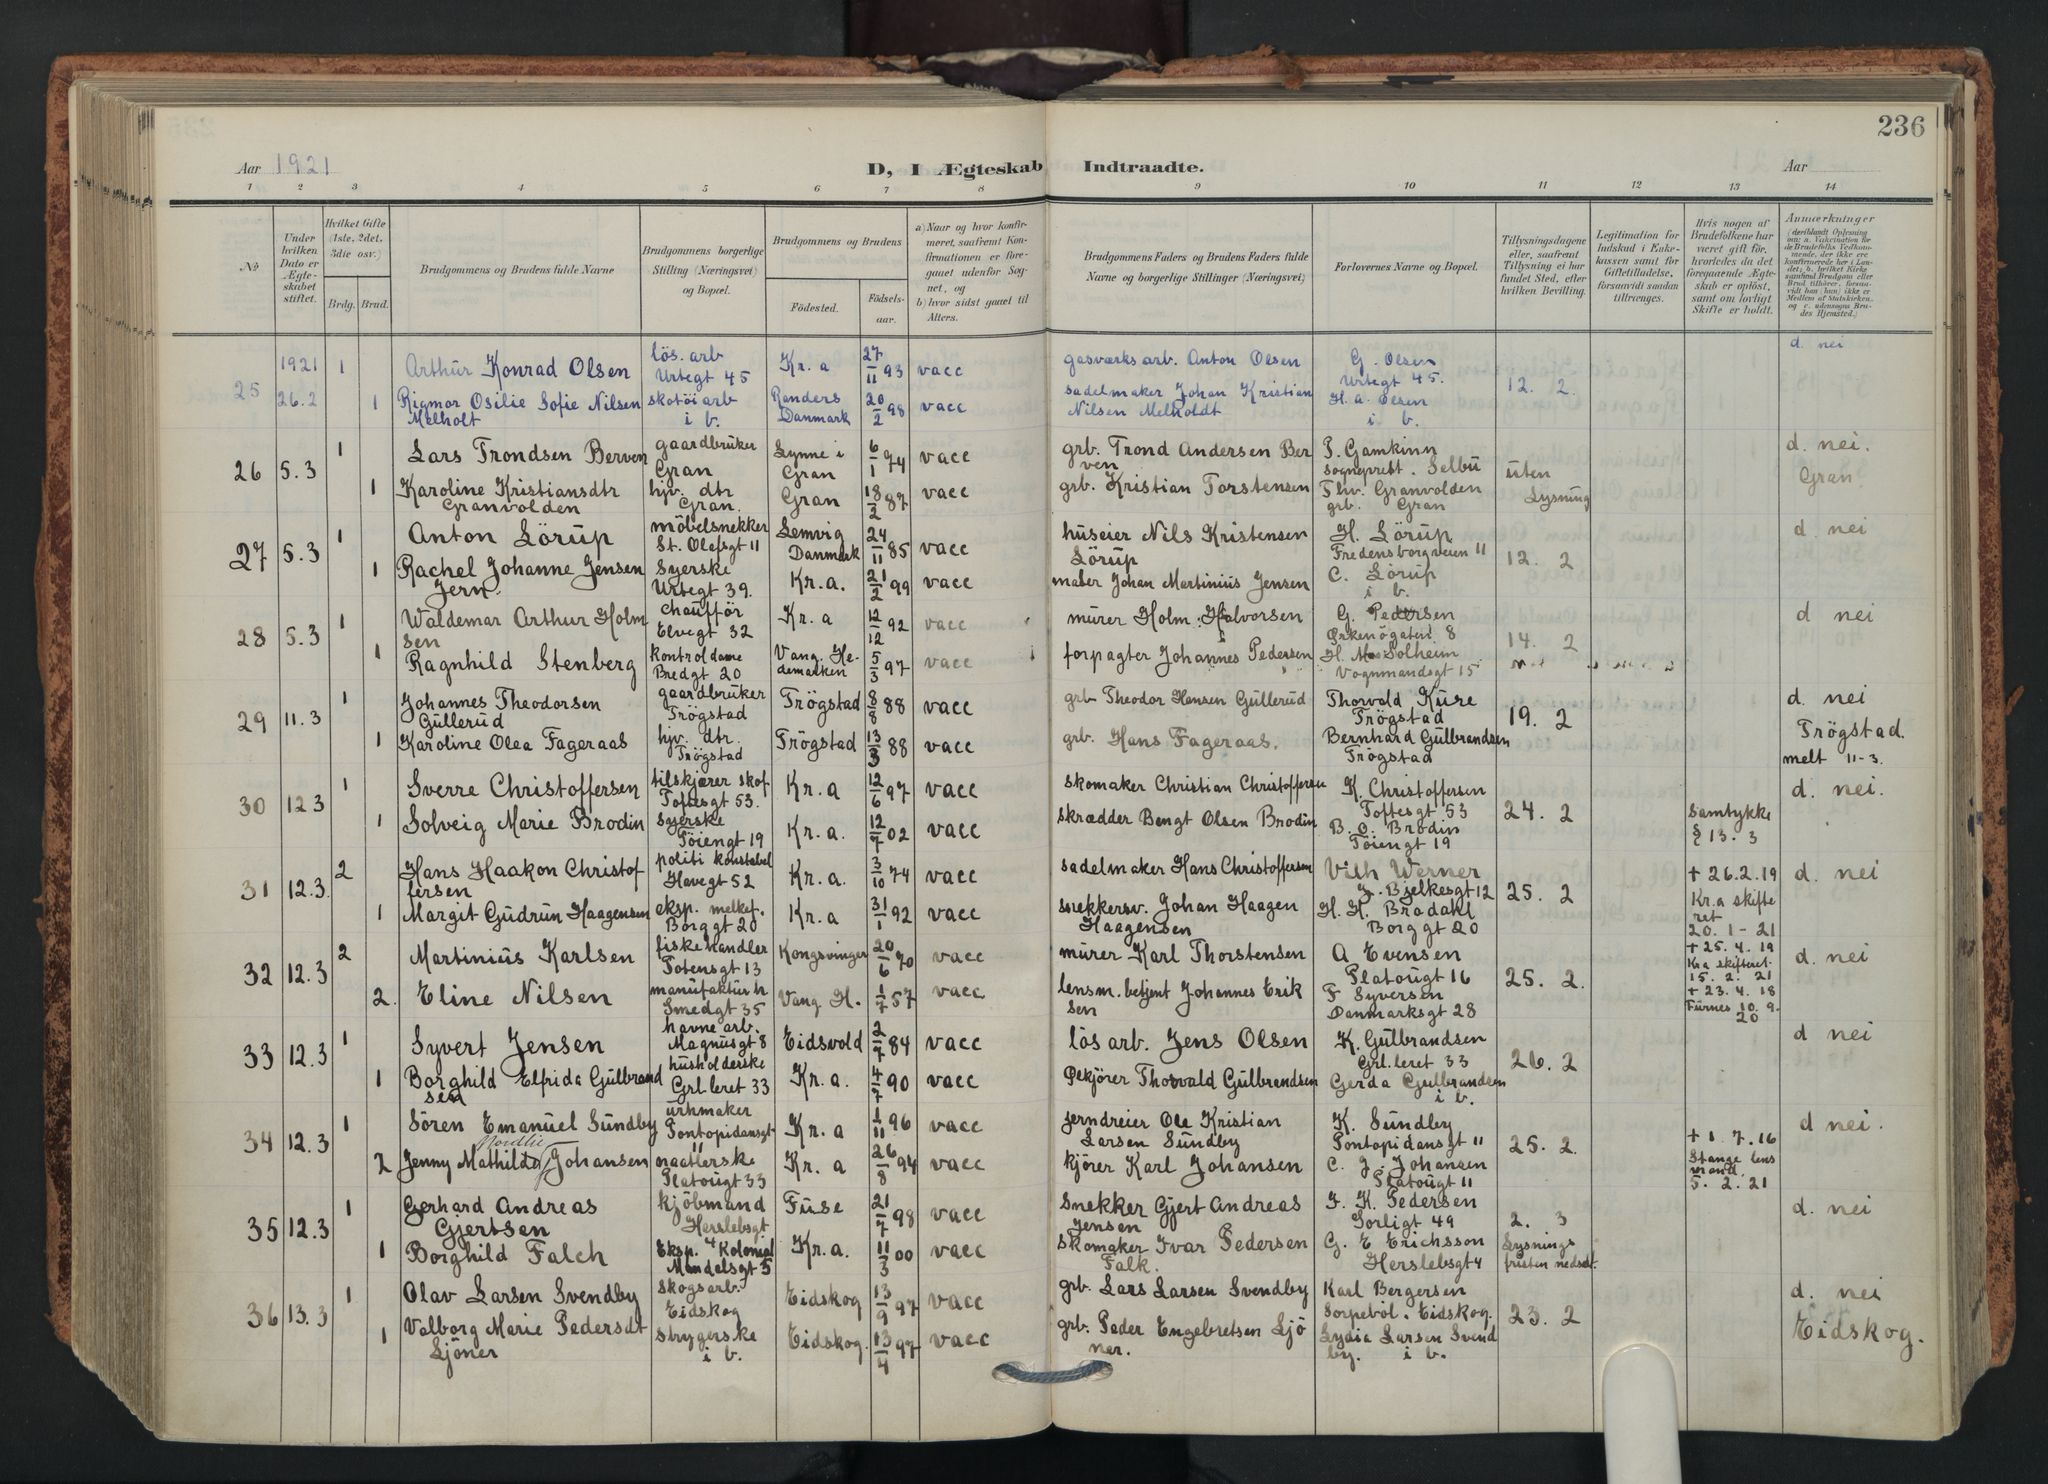 236
Aar 1921
D, I Ægteskab Indtraadte.
Aar
1 2 3 4 5 6 7 8 9 10 11 12 13 14
Nr
Under hvilken Dato er Ægteskabet stiftet.
Hvilket Gifte (1ste, 2det, 3die osv.)
Brdg. Brud.
Brudgommens og Brudens fulde Navne
Brudgommens borgerlige Stilling (Næringsvei) og Bopæl.
Brudgommens og Brudens
Fødested. Fødselsaar.
a) Naar og hvor konfirmeret, saafremt Konfirmationen er foregaaet udenfor Sognet, og
b) hvor sidst gaaet til Alters.
Brudgommens Faders og Brudens Faders fulde Navne og borgerlige Stillinger (Næringsvei)
Forlovernes Navne og Bopæl.
Tillysningsdagene eller, saafremt Tillysning ei har fundet Sted, efter hvilken Bevilling.
Legitimation for Indskud i Enkekassen samt for Giftetilladelse, forsaavidt saadan tiltrænges.
Hvis nogen af Brudefolkene har været gift før, hvorledes da det foregaaende Ægteskab er opløst, samt om lovligt Skifte er holdt.
Anmærkninger
(deriblandt Oplysning om: a. Vakcination for de Brudefolks Vedkommende, der ikke ere konfirmerede her i Landet; b. hvilket Kirkesamfund Brudgom eller Brud tilhører, forsaavidt han (hun) ikke er Medlem af Statskirken, og c. udensogns Brudes Hjemsted.)
25 1921 26.2 1 Arthur Konrad Olsen lös. arb Urtegt 45 Kr.a 27/11 93 vacc gasværks arb. Anton Olsen G. Olsen Urtegt 45. 12. 2. d. nei
1 Rigmor Osilie Sofie Nilsen Melholt skotöiarb i b. Randers Danmark 20/2 98 vacc sadelmaker Johan Kristian Nilsen Melholdt H. A. Olsen i b.
26 5.3 1 Lars Trondsen Berven gaardbruker Gran Lynne i Gran 6/1 74 vacc grb. Trond Andersen Berven P. Gamkinn sogneprest. Selbu uten Lysning d. nei. Gran
1 Karoline Kristiansdtr Granvolden hjv. dtr Gran. Gran 18/2 87 vacc grb. Kristian Torstensen Thv. Granvolden grb. Gran
27 5.3 1 Anton Lörup möbelsnekker St. Olafsgt 11 Lemvig Danmark 24/11 85 vacc huseier Nils Kristensen Lörup H. Lörup Fredensborgveien 11 12. 2 d. nei
1 Rachel Johanne Jensen Jern. syerske Urtegt 39. Kr.a. 21/2 99 vacc maler Johan Martinius Jensen C. Lörup i b.
28 5.3 1 Waldemar Arthur Holmsen chaufför Elvegt 32 Kr.a 12/12 92 vacc murer Holm Halvorsen G. Pedersen Örkenögaten 8 14. 2 d nei
1 Ragnhild Stenberg kontroldame Bredgt 20 Vang. Hedemarken 5/3 97 vacc forpagter Johannes Pedersen H. M Solheim Vognmandsgt 15
29 11.3 1 Johannes Theodorsen Gullerud gaardbruker Trögstad Trögstad 8/8 88 vacc grb Theodor Hansen Gullerud Thorvald Kure Trögstad 19. 2 d. nei
1 Karoline Olea Fageraas hjv. dtr. Trögstad Trögstad 13/3 88 vacc grb. Hans Fageraas. Bernhard Gulbrandsen Trögstad Trögstad. melt 11-3.
30 12.3 1 Sverre Christoffersen tilskjærer skof Toftesgt 53. Kr.a 12/6 97 vacc skomaker Christian Christoffersen K. Christoffersen Toftesgt 53 24. 2 Samtykke § 13. 3 d. nei.
1 Solveig Marie Brodin syerske Töiengt 19 Kr.a. 12/7 02 vacc skrædder Bengt Olsen Brodin B. O. Brodin Töiengt 19
31 12.3 2 Hans Haakon Christoffersen politi konstabel Havegt 52 Kr.a. 3/10 74 vacc sadelmaker Hans Christoffersen Vilh Werner J. Bjelkesgt 12 25. 2 + 26.2.19 Kr.a skifteret 20. 1 - 21 d. nei
1 Margit Gudrun Haagensen eksp. melkef. Borggt 20 Kr.a 31/1 92 vacc snekkersv. Johan Haagen Haagensen H. H. Brodahl Borggt 20
32 12.3 2 Martinius Karlsen fiskehandler Totensgt 13 Kongsvinger 20/6 70 vacc murer Karl Thorstensen A Evensen Platougt 16 25. 2. + 25. 4. 19 Kr.a skifteret 15. 2. 21 d. nei
2. Eline Nilsen manufaktur h Smedgt 35 Vang H. 1/7 57 vacc lensm. betjent Johannes Eriksen F Syversen Danmarksgt 28 + 23. 4. 18 Furnes 10. 9. 20
33 12.3 1 Syvert Jensen havne arb. Magnusgt 8 Eidsvold 2/7 84 vacc lös arb. Jens Olsen K. Gulbrandsen Grl. leret 33 26. 2 d nei
1 Borghild Elfrida Gulbrandsen husholderske Grl. leret 33 Kr.a. 4/7 90 vacc vekjörer Thorvald Gulbrandsen Gerda Gulbrandsen i b.
34 12.3 1 Sören Emanuel Sundby urhmaker Pontopidansgt 11 Kr.a 1/11 96 vacc jerndreier Ole Kristian Larsen Sundby K. Sundby Pontopidansgt 11 25. 2. + 1. 7. 16 Stange lensmand. 5. 2. 21 d nei.
2 Jenny Mathilde Nordlie Johansen Platougt 33 Kr.a 26/8 94 vacc kjörer Karl Johansen C. J. Johansen Platougt 11
35 12.3 1 Gerhard Andreas Gjertsen kjöbmand Herslebsgt 4 Fuse 21/7 98 vacc snekker Gjert Andreas Jensen J. K. Pedersen Sorligt 49 2. 3 Lysningsfristen nedsat d. nei
1 Borghild Falch Eksp. Kolonial Mandalsgt 5 Kr.a. 11/3 00 vacc skomaker Ivar Pedersen Falk. G. E Erichsson Herslebsgt 4
36 13.3 1 Olav Larsen Svendby skogsarb. Eidskog Eidskog 13/9 97 vacc grb. Lars Larsen Svendby Karl Bergersen Sorpeböl. Eidskog. 23. 2 d. nei
1 Valborg Marie Pedersdt Ljöner strygerske i b. Eidskog. 13/4 97 vacc grb. Peder Engebretsen Ljöner. Lydia Larsen Svendby. i b. Eidskog.